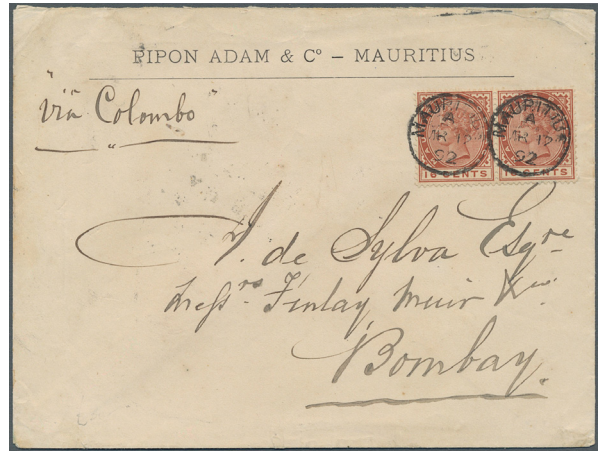 PIPON ADAM & Cº – MAURITIUS
"via Colombo"
MAURITIUS
A
17
92
MAURITIUS
A
17
92
16 CENTS
16 CENTS
J. de Sylva Esqre
Messrs Finlay, Muir & Co.
Bombay.